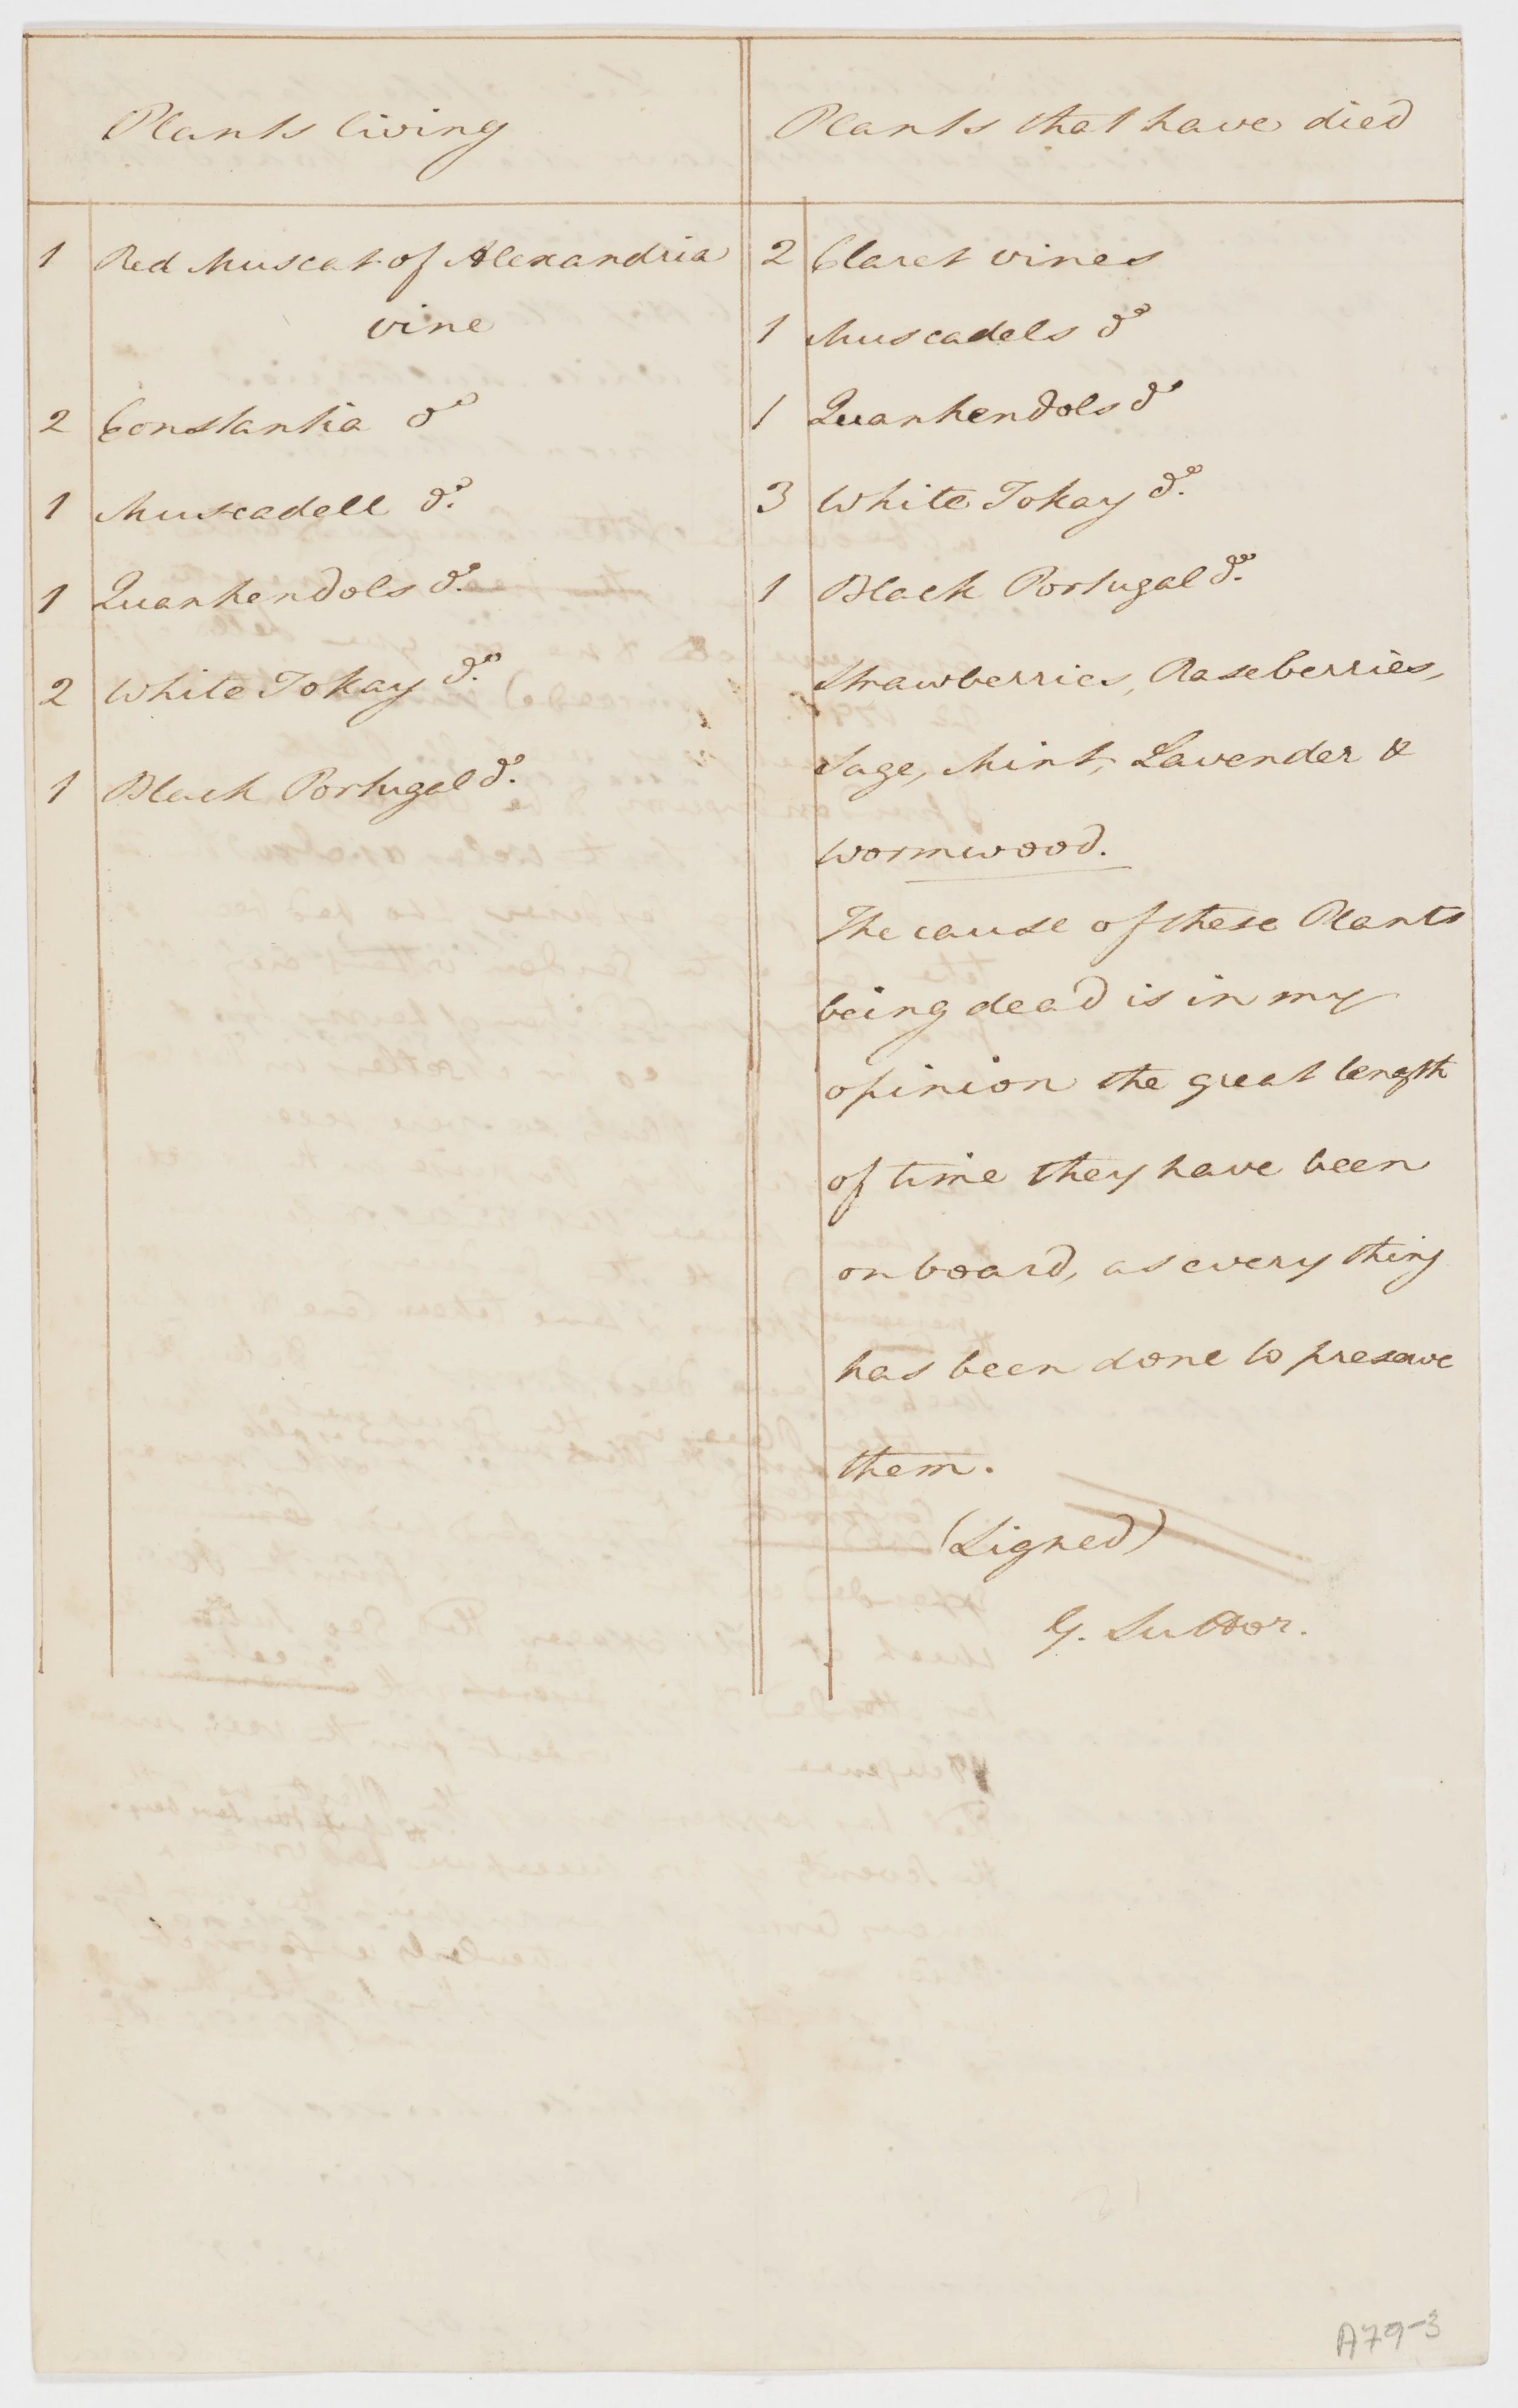 Plants living
1 Red Muscat of Alexandria
vine
2 Constantia do
1 Muscadell do.
1 Quarhendols do.
2 White Tokay do.
1 Black Portugal do.
Plants that have died
2 Claret vines
1 Muscadels do
1 Quarhendols do
3 White Tokay do.
1 Black Portugal do.
Strawberries, Raseberries,
Sage, Mint, Lavender &
wormwood.
The cause of these Plants
being dead is in my
opinion the great length
of time they have been
on board, as every thing
has been done to preserve
them.
(Signed)
G. Suttor.
A79-3